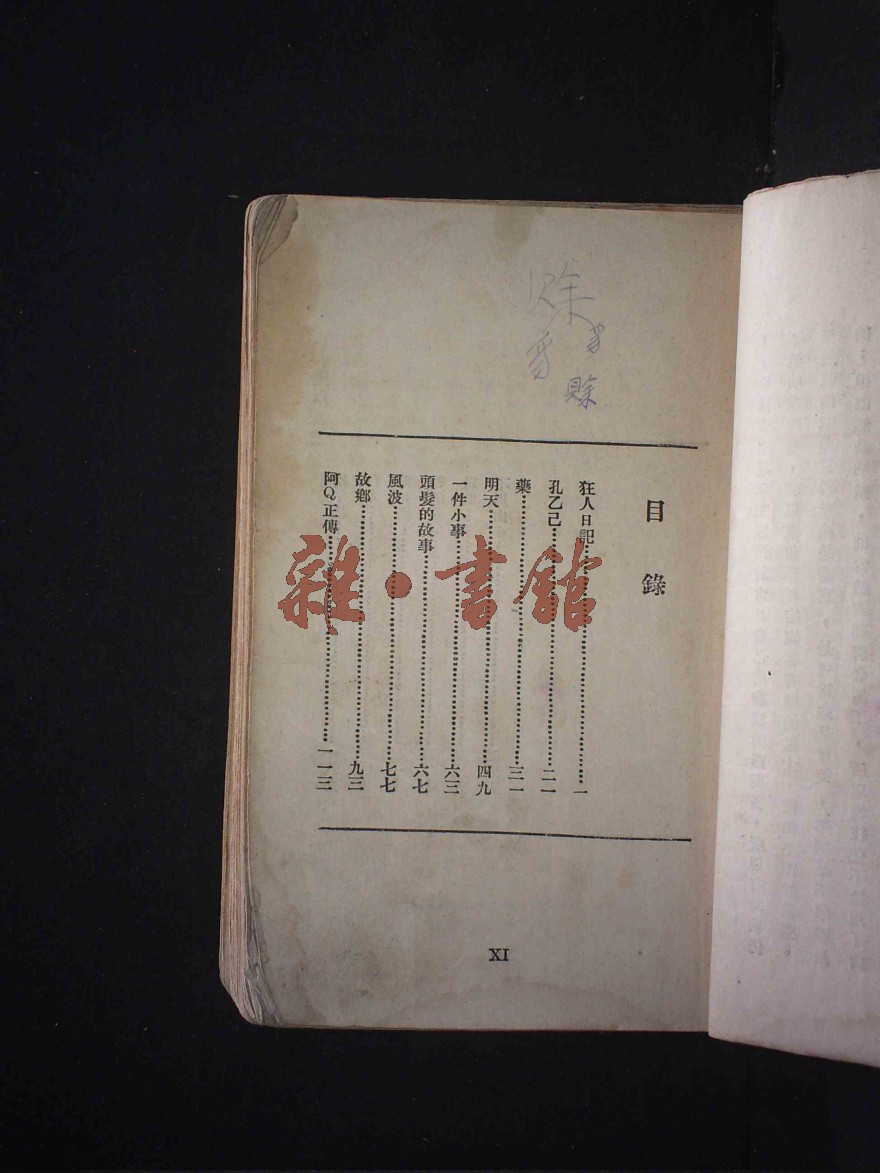 賒
目錄
狂人日記……一
孔乙己……二一
藥……三一
明天……四九
一件小事……六三
頭髮的故事……六七
風波……七七
故鄉……九三
阿Q正傳……一一三
雜·書館
XI